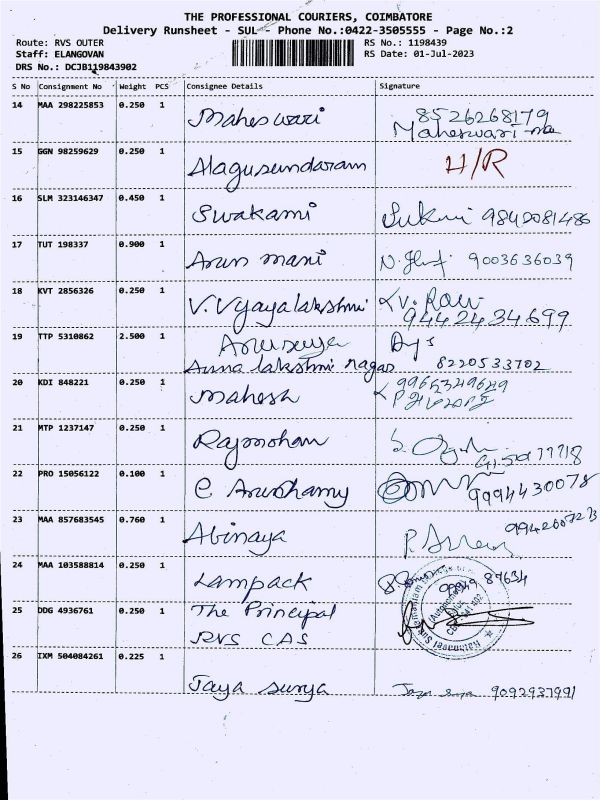 THE PROFESSIONAL COURIERS, COIMBATORE
Delivery Runsheet - SUL - Phone No.:0422-3505555 - Page No.:2
Route: RVS OUTER RS No.: 1198439
Staff: ELANGOVAN RS Date: 01-Jul-2023
DRS No.: DCJB119843902
S No Consignment No Weight PCS Consignee Details Signature
14 MAA 298225853 0.250 1 Maheswari 8526268179
Maheswari
15 GGN 98259629 0.250 1 Alagusundaram H/R
16 SLM 323146347 0.450 1 Swakami 9842081486
17 TUT 198337 0.900 1 Arun mani 9003636039
18 KVT 2856326 0.250 1 V. Vijayalakshmi V. Ravi
9442434699
19 TTP 5310862 2.500 1 Anusuya
Anna lakshmi nagar 8220533702
20 KDI 848221 0.250 1 Mahesh
21 MTP 1237147 0.250 1 Rajmohan
22 PRO 15056122 0.100 1 C Arushamy 9994430078
23 MAA 857683545 0.760 1 Abinaya
24 MAA 103588814 0.250 1 Lampack 87634
25 DDG 4936761 0.250 1 The Principal
RVS CAS
(Autonomous)
26 IXM 504084261 0.225 1 Jaya surya Jaya surya 9092937991